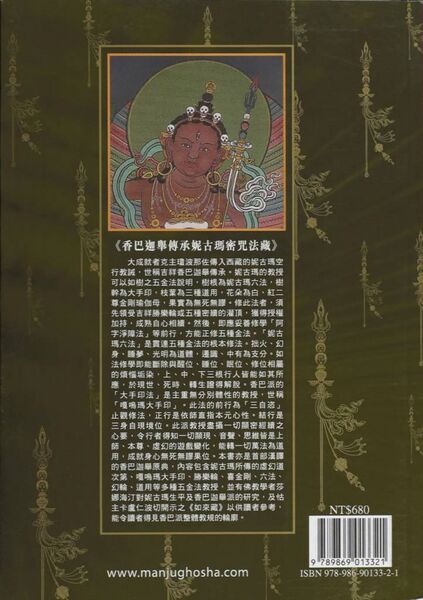 《香巴迦舉傳承妮古瑪密咒法藏》
大成就者克主瓊波那佐傳入西藏的妮古瑪空
行教誡，世稱吉祥香巴迦舉傳承。妮古瑪的教授
可以如樹之五金法說明，樹根為妮古瑪六法，樹
幹為大手印，枝葉為三種道用，花朵為白、紅二
尊金剛瑜伽母，果實為無死無謬。修此法者，須
先領受吉祥勝樂輪或五種密續的灌頂，獲得授權
加持，成熟自心相續。然後，即應妥善修學「阿
字淨障法」等前行，方能正修五種金法。「妮古
瑪六法」是五種金法的根本修法。拙火、幻
身、睡夢、光明為道體，遷識、中有為支分。如
法修學即能斷除與醒位、睡位、眠位、修位相屬
的煩惱垢染，上、中、下三根行人皆能如其所
應，於現世、死時、轉生證得解脫。香巴派的
「大手印法」是主重無分別體性的教授，世稱
「嘎嗚瑪大手印」。此法的前行為「三自恣」
止觀修法，正行是依師直指本元心性。結行是
三身自現境位。此派教授盡攝一切顯密經續之
心要，令行者得知一切顯現、音聲、思維皆是上
師、本尊、虛幻的遊戲變化，能轉一切萬法為道
用，成就身心無死無謬果位。本書亦是首部漢譯
的香巴迦舉原典，內容包含妮古瑪所傳的虛幻道
次第、嘎嗚瑪大手印、勝樂輪、喜金剛、六法、
幻輪、道用等多種五金法教授，並有佛教學者莎
娜海汀對妮古瑪生平及香巴迦舉派的研究，及怙
主卡盧仁波切開示之《如來藏》以供讀者參考，
能令讀者得見香巴派整體教規的輪廓。
www.manjughosha.com
NT$680
9 789869 013321
ISBN 978-986-90133-2-1